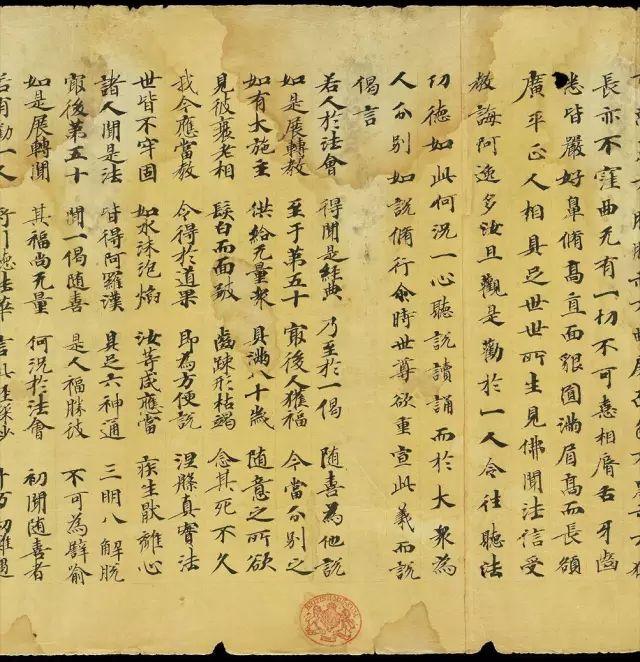 長亦不窪曲无有一切不可憙相脣舌牙齒
悉皆嚴好鼻脩高直面貌圓滿眉高而長額
廣平正人相具足世世所生見佛聞法信受
教誨阿逸多汝且觀是勸於一人令往聽法
功德如此何況一心聽說讀誦而於大眾為
人分別如說脩行尒時世尊欲重宣此義而說
偈言
若人於法會 得聞是經典 乃至於一偈 隨喜為他說
如是展轉教 至于第五十 冣後人獲福 今當分別之
如有大施主 供給无量眾 具滿八十歲 隨意之所欲
見彼衰老相 髮白而面皺 齒踈形枯竭 念其死不久
我今應當教 令得於道果 即為方便說 涅槃真實法
世皆不牢固 如水沫泡焰 汝等咸應當 疾生猒離心
諸人聞是法 皆得阿羅漢 具足六神通 三明八解脫
冣後第五十 聞一偈隨喜 是人福勝彼 不可為譬喻
如是展轉聞 其福尚无量 何況於法會 初聞隨喜者
若有勸一人